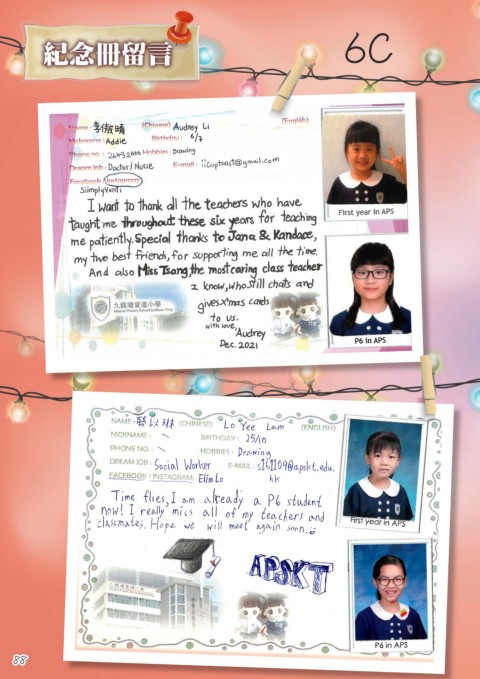 紀念冊留言
6C
Name: 李傲晴 (Chinese) Audrey Li (English)
Nickname: Addie Birthday: 6/7
Phone no.: Hobbies: Drawing
Dream Job: Doctor/Nurse E-mail:
Facebook/Instagram:
I want to thank all the teachers who have
taught me throughout these six years for teaching
me patiently. Special thanks to Jana & Kandace,
my two best friends, for supporting me all the time.
And also Miss Tsang, the most caring class teacher
I know, who still chats and
gives X'mas cards
to us.
with love,
Audrey
Dec. 2021
九龍塘宣道小學
First year in APS
P6 in APS
NAME: 以琳 (CHINESE) Lo Yee Lam (ENGLISH)
NICKNAME: \ BIRTHDAY: 25/10
PHONE NO.: \ HOBBIES: Drawing
DREAM JOB: Social Worker E-MAIL: s161109@apskt.edu.
hk
FACEBOOK / INSTAGRAM: Elim Lo
Time flies, I am already a P6 student
now! I really miss all of my teachers and
classmates. Hope we will meet again soon.
APSKT
First year in APS
P6 in APS
88